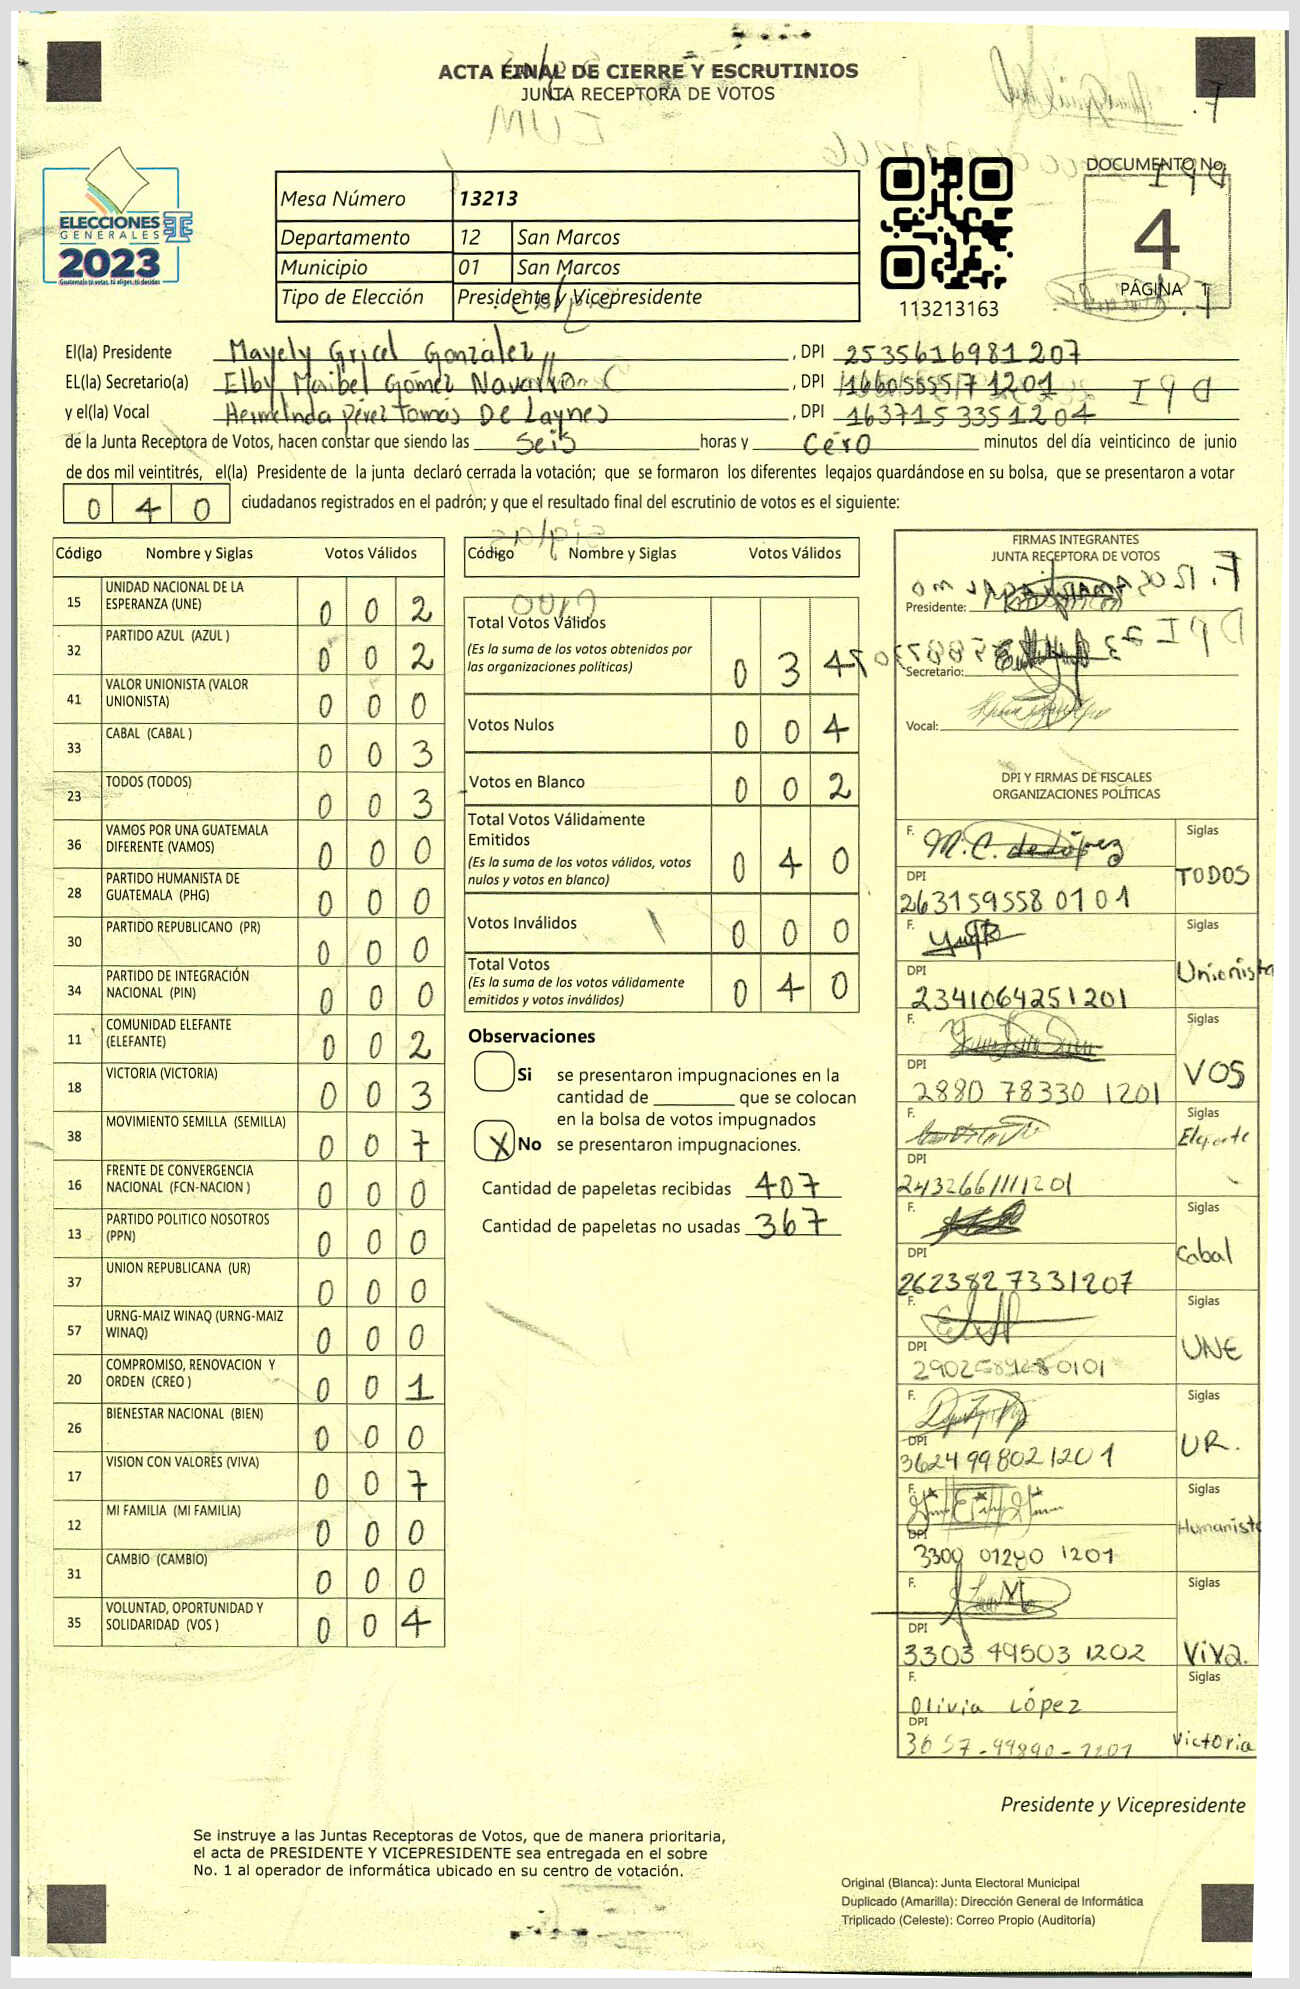 ACTA FINAL DE CIERRE Y ESCRUTINIOS
JUNTA RECEPTORA DE VOTOS
ELECCIONES
GENERALES
2023
Guatemala tú votas, tú eliges, tú decides
Mesa Número 13213
Departamento 12 San Marcos
Municipio 01 San Marcos
Tipo de Elección Presidente y Vicepresidente
113213163
DOCUMENTO No.
4
PÁGINA
El(la) Presidente Mayely Gricel González, DPI 2535616981207
EL(la) Secretario(a) Elby Maibel Gómez Navarro, DPI 1660555571201
y el(la) Vocal Hermelnda Pérez Tomás De Laynes, DPI 1637153351204
de la Junta Receptora de Votos, hacen constar que siendo las Seis horas y Cero minutos del día veinticinco de junio
de dos mil veintitrés, el(la) Presidente de la junta declaró cerrada la votación; que se formaron los diferentes legajos quardándose en su bolsa, que se presentaron a votar
0 4 0 ciudadanos registrados en el padrón; y que el resultado final del escrutinio de votos es el siguiente:
Código Nombre y Siglas Votos Válidos
15 UNIDAD NACIONAL DE LA ESPERANZA (UNE) 0 0 2
32 PARTIDO AZUL (AZUL ) 0 0 2
41 VALOR UNIONISTA (VALOR UNIONISTA) 0 0 0
33 CABAL (CABAL ) 0 0 3
23 TODOS (TODOS) 0 0 3
36 VAMOS POR UNA GUATEMALA DIFERENTE (VAMOS) 0 0 0
28 PARTIDO HUMANISTA DE GUATEMALA (PHG) 0 0 0
30 PARTIDO REPUBLICANO (PR) 0 0 0
34 PARTIDO DE INTEGRACIÓN NACIONAL (PIN) 0 0 0
11 COMUNIDAD ELEFANTE (ELEFANTE) 0 0 2
18 VICTORIA (VICTORIA) 0 0 3
38 MOVIMIENTO SEMILLA (SEMILLA) 0 0 7
16 FRENTE DE CONVERGENCIA NACIONAL (FCN-NACION ) 0 0 0
13 PARTIDO POLITICO NOSOTROS (PPN) 0 0 0
37 UNION REPUBLICANA (UR) 0 0 0
57 URNG-MAIZ WINAQ (URNG-MAIZ WINAQ) 0 0 0
20 COMPROMISO, RENOVACION Y ORDEN (CREO ) 0 0 1
26 BIENESTAR NACIONAL (BIEN) 0 0 0
17 VISION CON VALORES (VIVA) 0 0 7
12 MI FAMILIA (MI FAMILIA) 0 0 0
31 CAMBIO (CAMBIO) 0 0 0
35 VOLUNTAD, OPORTUNIDAD Y SOLIDARIDAD (VOS ) 0 0 4
Código Nombre y Siglas Votos Válidos
Total Votos Válidos
(Es la suma de los votos obtenidos por
las organizaciones políticas) 0 3 4
Votos Nulos 0 0 4
Votos en Blanco 0 0 2
Total Votos Válidamente
Emitidos
(Es la suma de los votos válidos, votos
nulos y votos en blanco) 0 4 0
Votos Inválidos 0 0 0
Total Votos
(Es la suma de los votos válidamente
emitidos y votos inválidos) 0 4 0
Observaciones
Si se presentaron impugnaciones en la
cantidad de ________ que se colocan
en la bolsa de votos impugnados
X No se presentaron impugnaciones.
Cantidad de papeletas recibidas 407
Cantidad de papeletas no usadas 367
FIRMAS INTEGRANTES
JUNTA RECEPTORA DE VOTOS
Presidente:
Secretario:
Vocal:
DPI Y FIRMAS DE FISCALES
ORGANIZACIONES POLÍTICAS
F. M.C. de López Siglas
DPI TODOS
2631595580101
F. Siglas
DPI Unionista
2341064251201
F. Siglas
DPI VOS
2880 78330 1201
F. Siglas
DPI
2432661111201
F. Siglas
DPI Cabal
2623827331207
F. Siglas
DPI UNE
F. Siglas
DPI UR.
3624998021201
F. Siglas
DPI Humanista
3300 01280 1201
F. Siglas
DPI
3303 49503 1202 VIVA.
F. Siglas
Olivia López
DPI
3657-99890-1201 Victoria
Presidente y Vicepresidente
Se instruye a las Juntas Receptoras de Votos, que de manera prioritaria,
el acta de PRESIDENTE Y VICEPRESIDENTE sea entregada en el sobre
No. 1 al operador de informática ubicado en su centro de votación.
Original (Blanca): Junta Electoral Municipal
Duplicado (Amarilla): Dirección General de Informática
Triplicado (Celeste): Correo Propio (Auditoría)